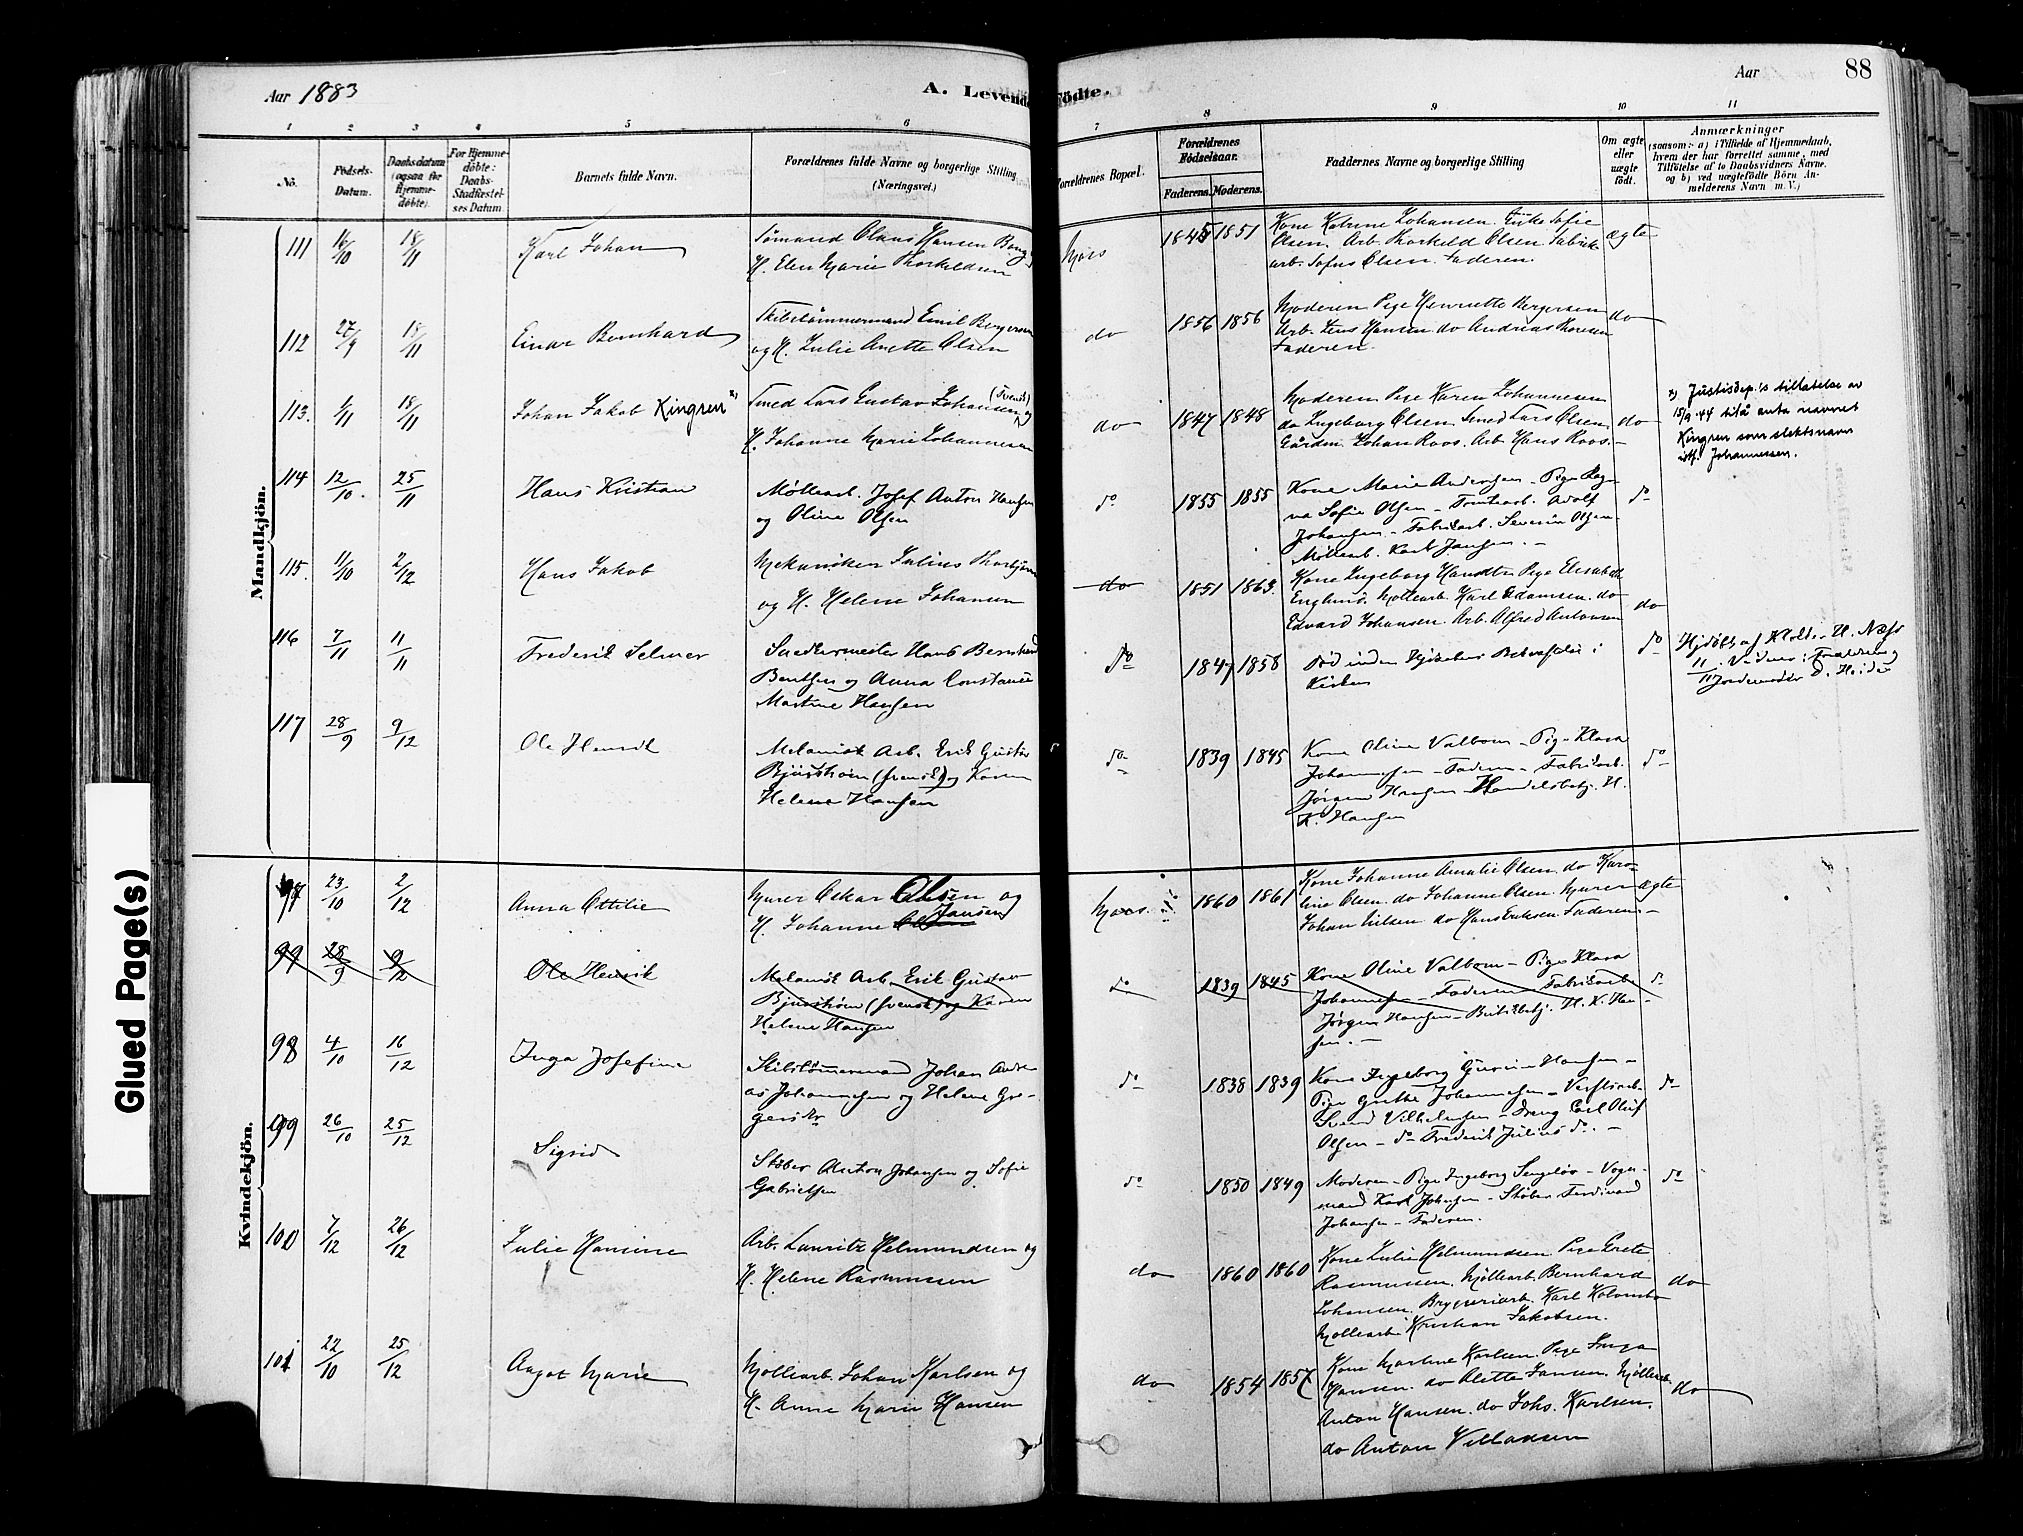 Aar 1883
A. Levende
födte.
Aar
88
1 2 3 4 5 6 7 8 9 10 11
No.
Födsels-
Datum.
Daabsdatum
(ogsaa for
Hjemme-
döbte).
For Hjemme-
döbte:
Daabs-
Stadfæstel-
ses Datum
Barnets fulde Navn.
Forældrenes fulde Navne og borgerlige Stilling
(Næringsvei.)
Forældrenes Bopæl.
Forældrenes
Födselsaar.
Faderens. Moderens.
Faddernes Navne og borgerlige Stilling
Om ægte
eller
uægte
födt.
Anmærkninger
(saasom: a) i Tilfælde af Hjemmedaab,
hvem der har forrettet samme, med
Tilföielse af to Daabsvidners Navne,
og b) ved uægtefödte Börn An-
melderens Navn m. V.)
Mandkjön.
111 16/10 18/11 Karl Johan
Sømand Claus Hansen Bang
H. Elen Marie Thorkeldsen
Moss 1845 1851
Kone Katrine Johansen. Enke Sofie
Olsen. Arb. Thorkeld Olsen Fabrik
arb. Sofus Olsen. Faderen.
ægte
112 27/9 18/11 Einar Bernhard
Skibstømmermand Emil Bergersen
og H. Julie Anette Olsen
do 1856 1856
Moderen Pige Henriette Bergersen
Arb. Jens Hansen do Andreas Thoresen
Faderen.
do
113. 1/11 18/11 Johan Jakob Kingren x)
Smed Lars Gustav Johansen (Svensk) og
H. Johanne Marie Johannesen
do 1847 1848
Moderen Pige Karen Johannesen
do Ingeborg Olsen Smed Lars Olsen
Gården Johan Roos. Arb Hans Roos.
do
x) Justisdep.'s tillatelse av
15/9 44 til å anta navnet
Kingren som slektsnavn
istf. Johannessen.
114 12/10. 25/11 Hans Kristian
Møllearb. Josef Anton Hansen
og Oline Olsen
do 1855 1855
Kone Marie Andersen - Pige Rag-
na Sofie Olsen - Adolf
Johansen - Fabrikarb. Severin Olsen
Møllearb. Karl Jansen. -
do
115. 11/10 2/12 Hans Jakob
Mekaniker Julius Thorbjørnsen
og H. Helene Johansen
do 1851 1863.
Kone Ingeborg Pige Elisabeth
Englund. Møllearb. Karl Adamsen. do
Edvard Johansen. Arb. Alfred Antonsen
do
116 7/11 11/11 Frederik Selmer
Snedkermester Hans Bernhard
Bentsen og Anna Constance
Martine Hansen
do 1847 1858
Død inden Bekræftelse i
Kirken
do
Hjdøbt af H. Næss
11/11. Vidner: Faderen og
Jordemoder D. Heide
117 28/9 9/12 Ole Henrik
Mekanisk Arb. Erik Gustav
Bjurstrøm (svensk) og Karen
Helene Hansen
do 1839 1845
Kone Oline Valbom - Pige Klara
Johannesen - Faderen - Fabrikarb.
Jørgen Hansen Handelsbetj. H.
K. Hansen
do
Kvindekjön.
97 23/10 2/12 Anna Ottilie
Murer Oskar Olsen og
H. Johanne Olsen Jansen
Moss. 1860 1861
Kone Johanne Amalie Olsen. do Karo-
line Olsen. do Johanne Olsen. Murer
Johan Nilsen do Hans Eriksen Faderen.
ægte
99 28/9 9/12 Ole Henrik
Mekanisk Arb. Erik Gustav
Bjurstrøm (svensk) og Karen
Helene Hansen
do 1839 1845
Kone Oline Valbom - Pige Klara
Johannesen - Faderen - Fabrikarb
Jørgen Hansen - Butikbetj. H. K. Han-
sen. -
do
98 4/10 16/12 Inga Josefine
Skibstømmermand Johan Andre-
as Johannesen og Helene Gre-
gersdtr
do 1838 1839
Kone Ingeborg Hansen -
Pige Grethe Johannesen - Verftsarb.
Svend Vilhelmsen - Dreng Carl Oluf
Olsen - do Frederik Julius do. -
do
99 26/10 25/12 Sigrid
Støber Anton Johansen og Sofie
Gabrielsen
do 1850 1849
Moderen - Pige Ingeborg Sengeløv - Vogn-
mand Karl Johnsen - Støber Ferdinand
Johansen - Faderen.
do
100 7/12 26/12 Julie Hansine
Arb. Lauritz Helmundsen og
H. Helene Rasmussen
do 1860 1860
Kone Julie Helmundsen Pige Grete
Rasmussen. Møllearb. Bernhard
Johansen. Bryggeriarb. Karl Kolombo
Møllearb Kristian Jakobsen.
do
101 22/10 25/12 Aagot Marie
Møllearb. Johan Karlsen og
H. Anne Marie Hansen
do 1854 1857
Kone Martine Karlsen. Pige Inga
Hansen. do Alette Jansen. Møllearb.
Anton Hansen. do Johs. Karlsen.
do Anton Villadsen
do
Glued Page(s)